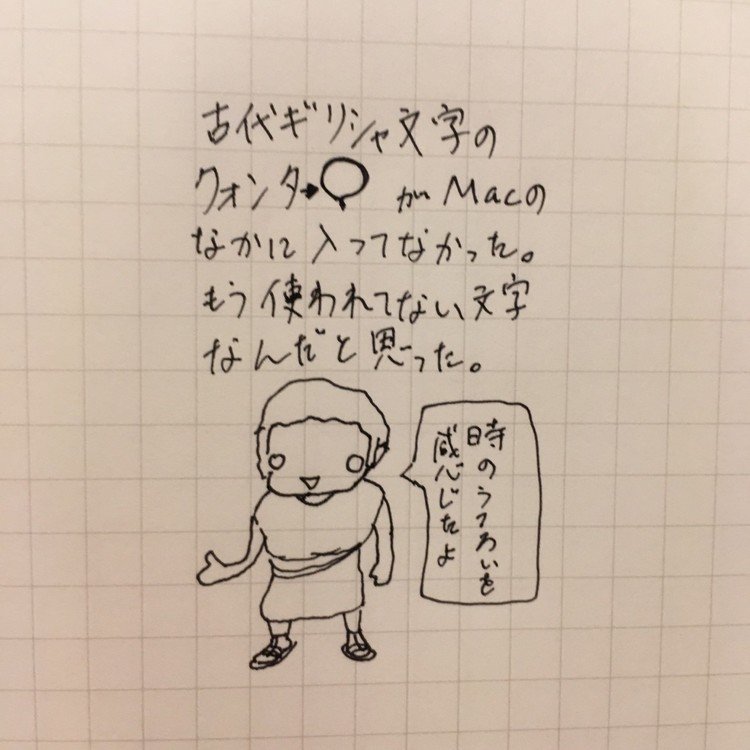 古代ギリシャ文字の
クォンタ→ がMacの
なかに入ってなかった。
もう使われてない文字
なんだと思った。
時のうつろいを
感じたよ